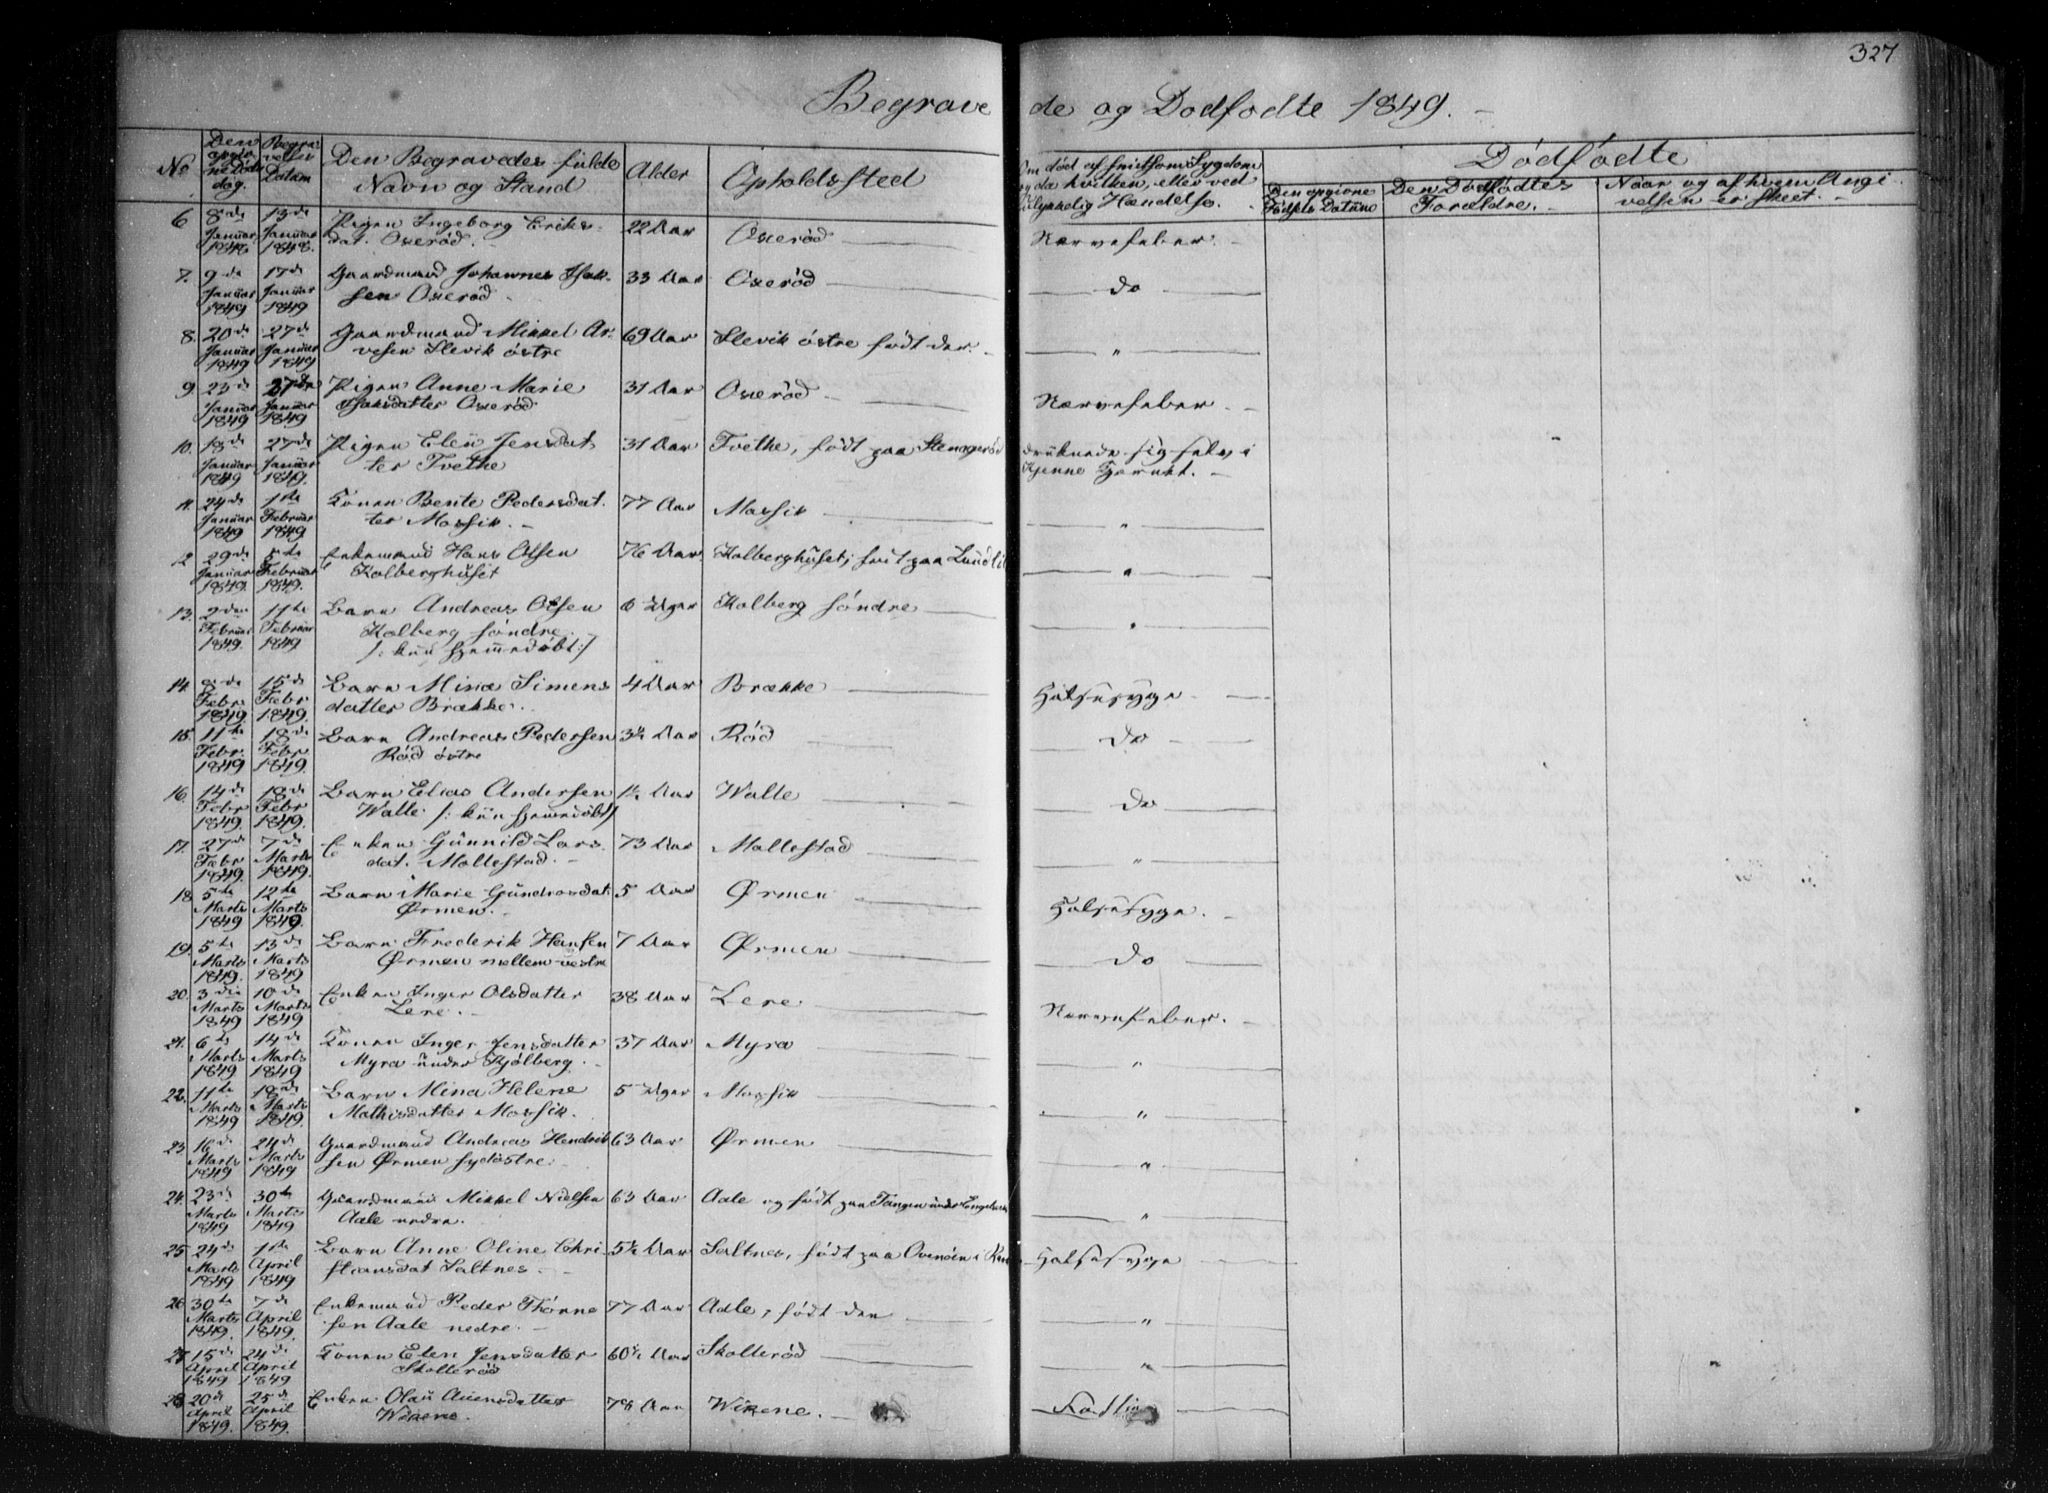 327
Begravede og Dødfødte 1849.
No
Den opgivne Døds dag.
Begravelses Datum
Den Begravedes fulde Navn og Stand
Alder
Opholdssted
Om død af smitsom Sygdom og da hvilken, eller ved ulykkelig Hændelse.
Dødfødte
Den opgivne Fødsels Datum
Den Dødfødtes Forældre.
Naar og af hvem Angivelsen er skeet.
6 8de Januar 1848 13de Januar 1848. Pigen Ingeborg Eriks- 22 Aar Oserød Nervefeber.
dat. Oserød.
7. 9de Januar 1849 17de Januar 1849 Gaardmand Johannes Isak- 33 Aar Oserød do
sen Oserød
8. 20de Januar 1849 27de Januar 1849 Gaardmand Mikkel Ar- 69 Aar Slevik østre født der. "
vesen Slevik østre
9. 23de Januar 1849 27de Januar 1849 Pigen Anne Marie 31 Aar Oserød Nervefeber.
Isaksdatter Oserød
10. 18de Januar 1849 27de Januar 1849. Pigen Elen Jensdat 31 Aar Tvethe, født paa druknede sig selv i
ter Tvethe Kjenne Tjernet.
11. 24de Januar 1849 1ste Februar 1849 Konen Bente Pedersdat. 77 Aar Mossik "
ter Mossik.
12 29de Januar 1849. 5te Februar 1849. Enkemand Hans Olsen 76 Aar Kolberghuset; født paa "
Kolberghuset
13. 2den Februar 1849. 11te Februar 1849 Barn Andreas Olsen 6 Uger Kolberg søndre "
Kolberg søndre.
/: kun hjemmedøbt :/
14. 8de Febr 1849 15de Febr 1849. Barn Mina Simens 4 Aar Brække Halssyge
datter Brække.
15. 11te Febr. 1849 18de Febr 1849. Barn Andreas Pedersen 3½ Aar Rød do
Rød østre
16. 14de Febr 1849. 18de Febr 1849. Barn Elias Andersen 1½ Aar Walle do
Walle /: kun hjemmedøbt /
17. 27de Febr 1849 7de Marts 1849. Enken Gunnild Lars 73 Aar Mollestad "
dat. Mollestad.
18 5te Marts 1849 12te Marts 1849. Barn Marie Gundrosdat: 5 Aar Ørmen Halssyge.
Ørmen.
19. 5te Marts 1849. 13de Marts 1849 Barn Frederik Hansen 7 Aar Ørmen do
Ørmen mellem vestre
20. 3die Marts 1849 10de Marts 1849 Enken Inger Olsdatter 38 Aar Lere. Nervefeber.
Lere.
21. 6te Marts 1849 14de Marts 1849 Konen Inger Jensdatter 37 Aar Myra "
Myra under Kjølberg.
22. 11te Marts 1849 18de Marts 1849. Barn Mina Helene 5 Uger Mossik "
Mathisdatter Mossik.
23. 16de Marts 1849 24de Marts 1849 Gaardmand Andreas Hendrik 63 Aar Ørmen "
sen Ørmen sydøstre.
24. 23de Marts 1849 30te Marts 1849 Gaardmand Mikkel Nielsen 63 Aar Aale og født paa Tangen under "
Aale nedre.
25 24de Marts 1849 1ste April 1849 Barn Anne Oline Chri 5½ Aar Saltnes, født paa Halssyge
stiansdat Saltnes.
26 30te Marts 1849. 7de April 1849. Enkemand Peder Thørne 77 Aar Aale, født der "
sen Aale nedre.
27 15de April 1849 24de April 1849 Konen Elen Jensdatter 60½ Aar Skollerød "
Skollerød
28 20de April 1849. 25de April 1849. Enken 78 Aar Wikene.
Wikene.